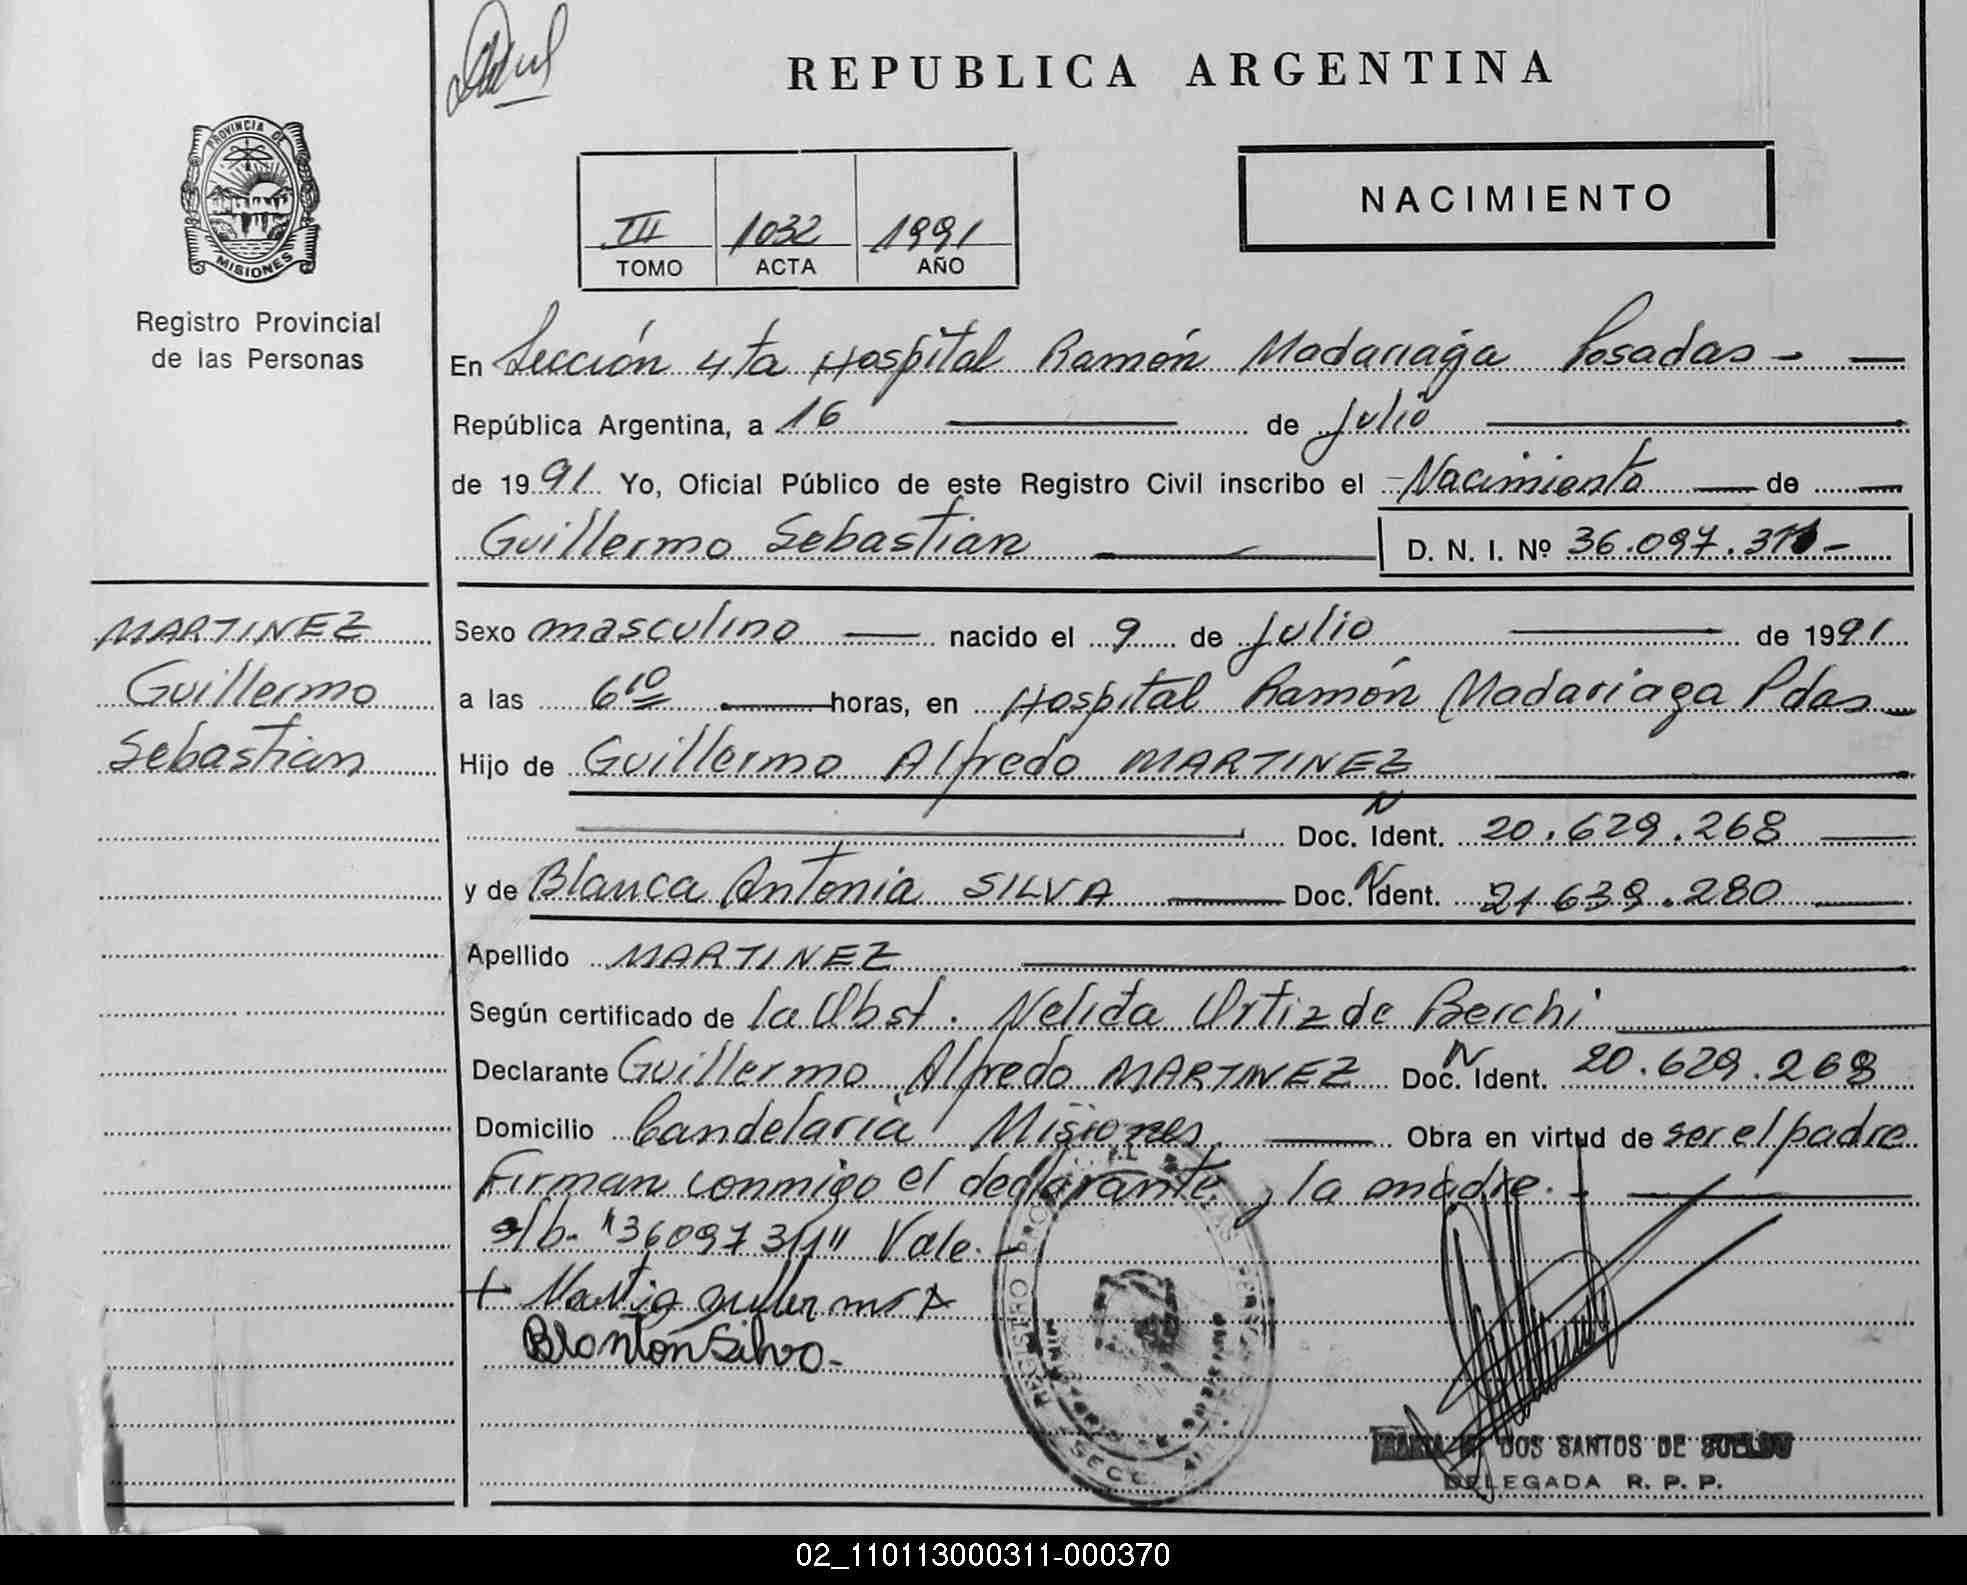 REPUBLICA ARGENTINA
PROVINCIA DE
MISIONES
Registro Provincial
de las Personas
III 1032 1991
TOMO ACTA AÑO
NACIMIENTO
En Sección 4ta Hospital Ramón Madariaga Posadas -
República Argentina, a 16 de Julio
de 1991 Yo, Oficial Público de este Registro Civil inscribo el Nacimiento de
Guillermo Sebastian D. N. I. Nº 36.097.311-
MARTINEZ
Guillermo
Sebastian
Sexo masculino nacido el 9 de Julio de 1991
a las 6 10 horas, en Hospital Ramón Madariaga Pdas
Hijo de Guillermo Alfredo MARTINEZ
Doc. N Ident. 20.629.268
y de Blanca Antonia SILVA Doc. N Ident. 21639.280
Apellido MARTINEZ
Según certificado de la Obst. Nelida Ortiz de Berchi
Declarante Guillermo Alfredo MARTINEZ Doc. N Ident. 20.629.268
Domicilio Candelaria Misiones Obra en virtud de ser el padre
Firman conmigo el declarante y la madre.
s/b. "36097311" Vale.
Silva
REGISTRO
SECC.
DOS SANTOS DE
DELEGADA R. P. P.
02_110113000311-000370